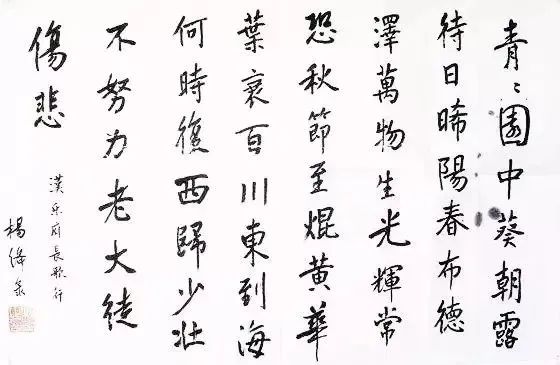 青〻園中葵朝露
待日晞陽春布德
澤萬物生光輝常
恐秋節至焜黃華
葉衰百川東到海
何時復西歸少壯
不努力老大徒
傷悲
漢乐府長歌行
楊絳